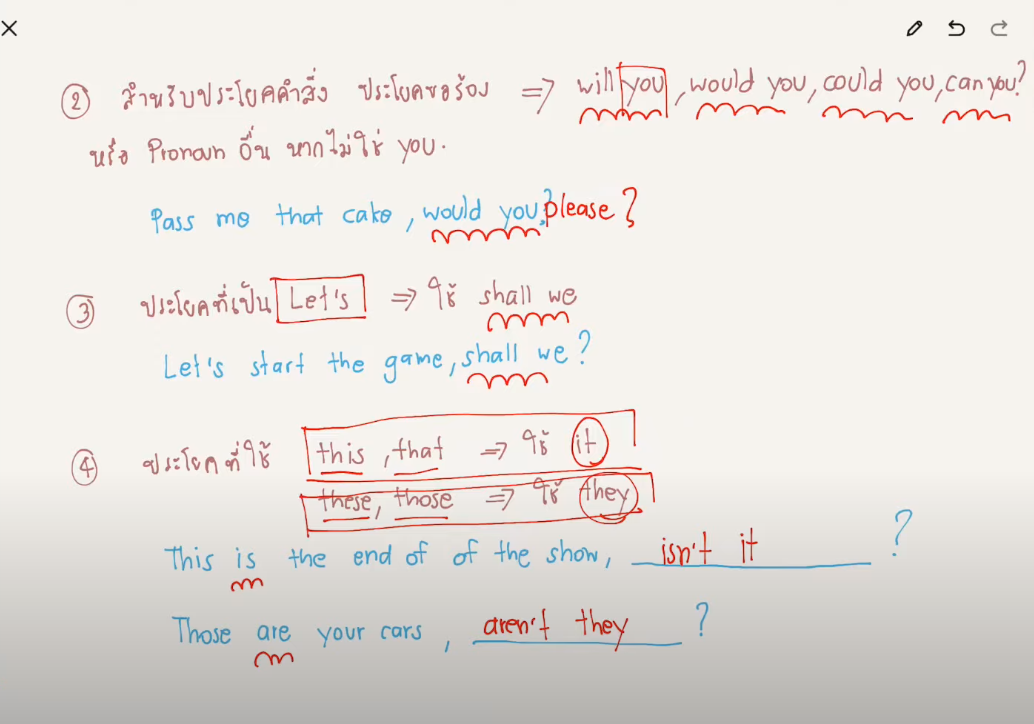 ② สำหรับประโยคคำสั่ง ประโยคขอร้อง ⇒ will you, would you, could you, can you?
หรือ Pronoun อื่น หากไม่ใช่ you.
Pass me that cake, would you? please?
③ ประโยคที่เป็น Let's ⇒ ใช้ shall we
Let's start the game, shall we?
④ ประโยคที่ใช้ this, that ⇒ ใช้ it
these, those ⇒ ใช้ they
This is the end of of the show, isn't it ?
Those are your cars, aren't they ?